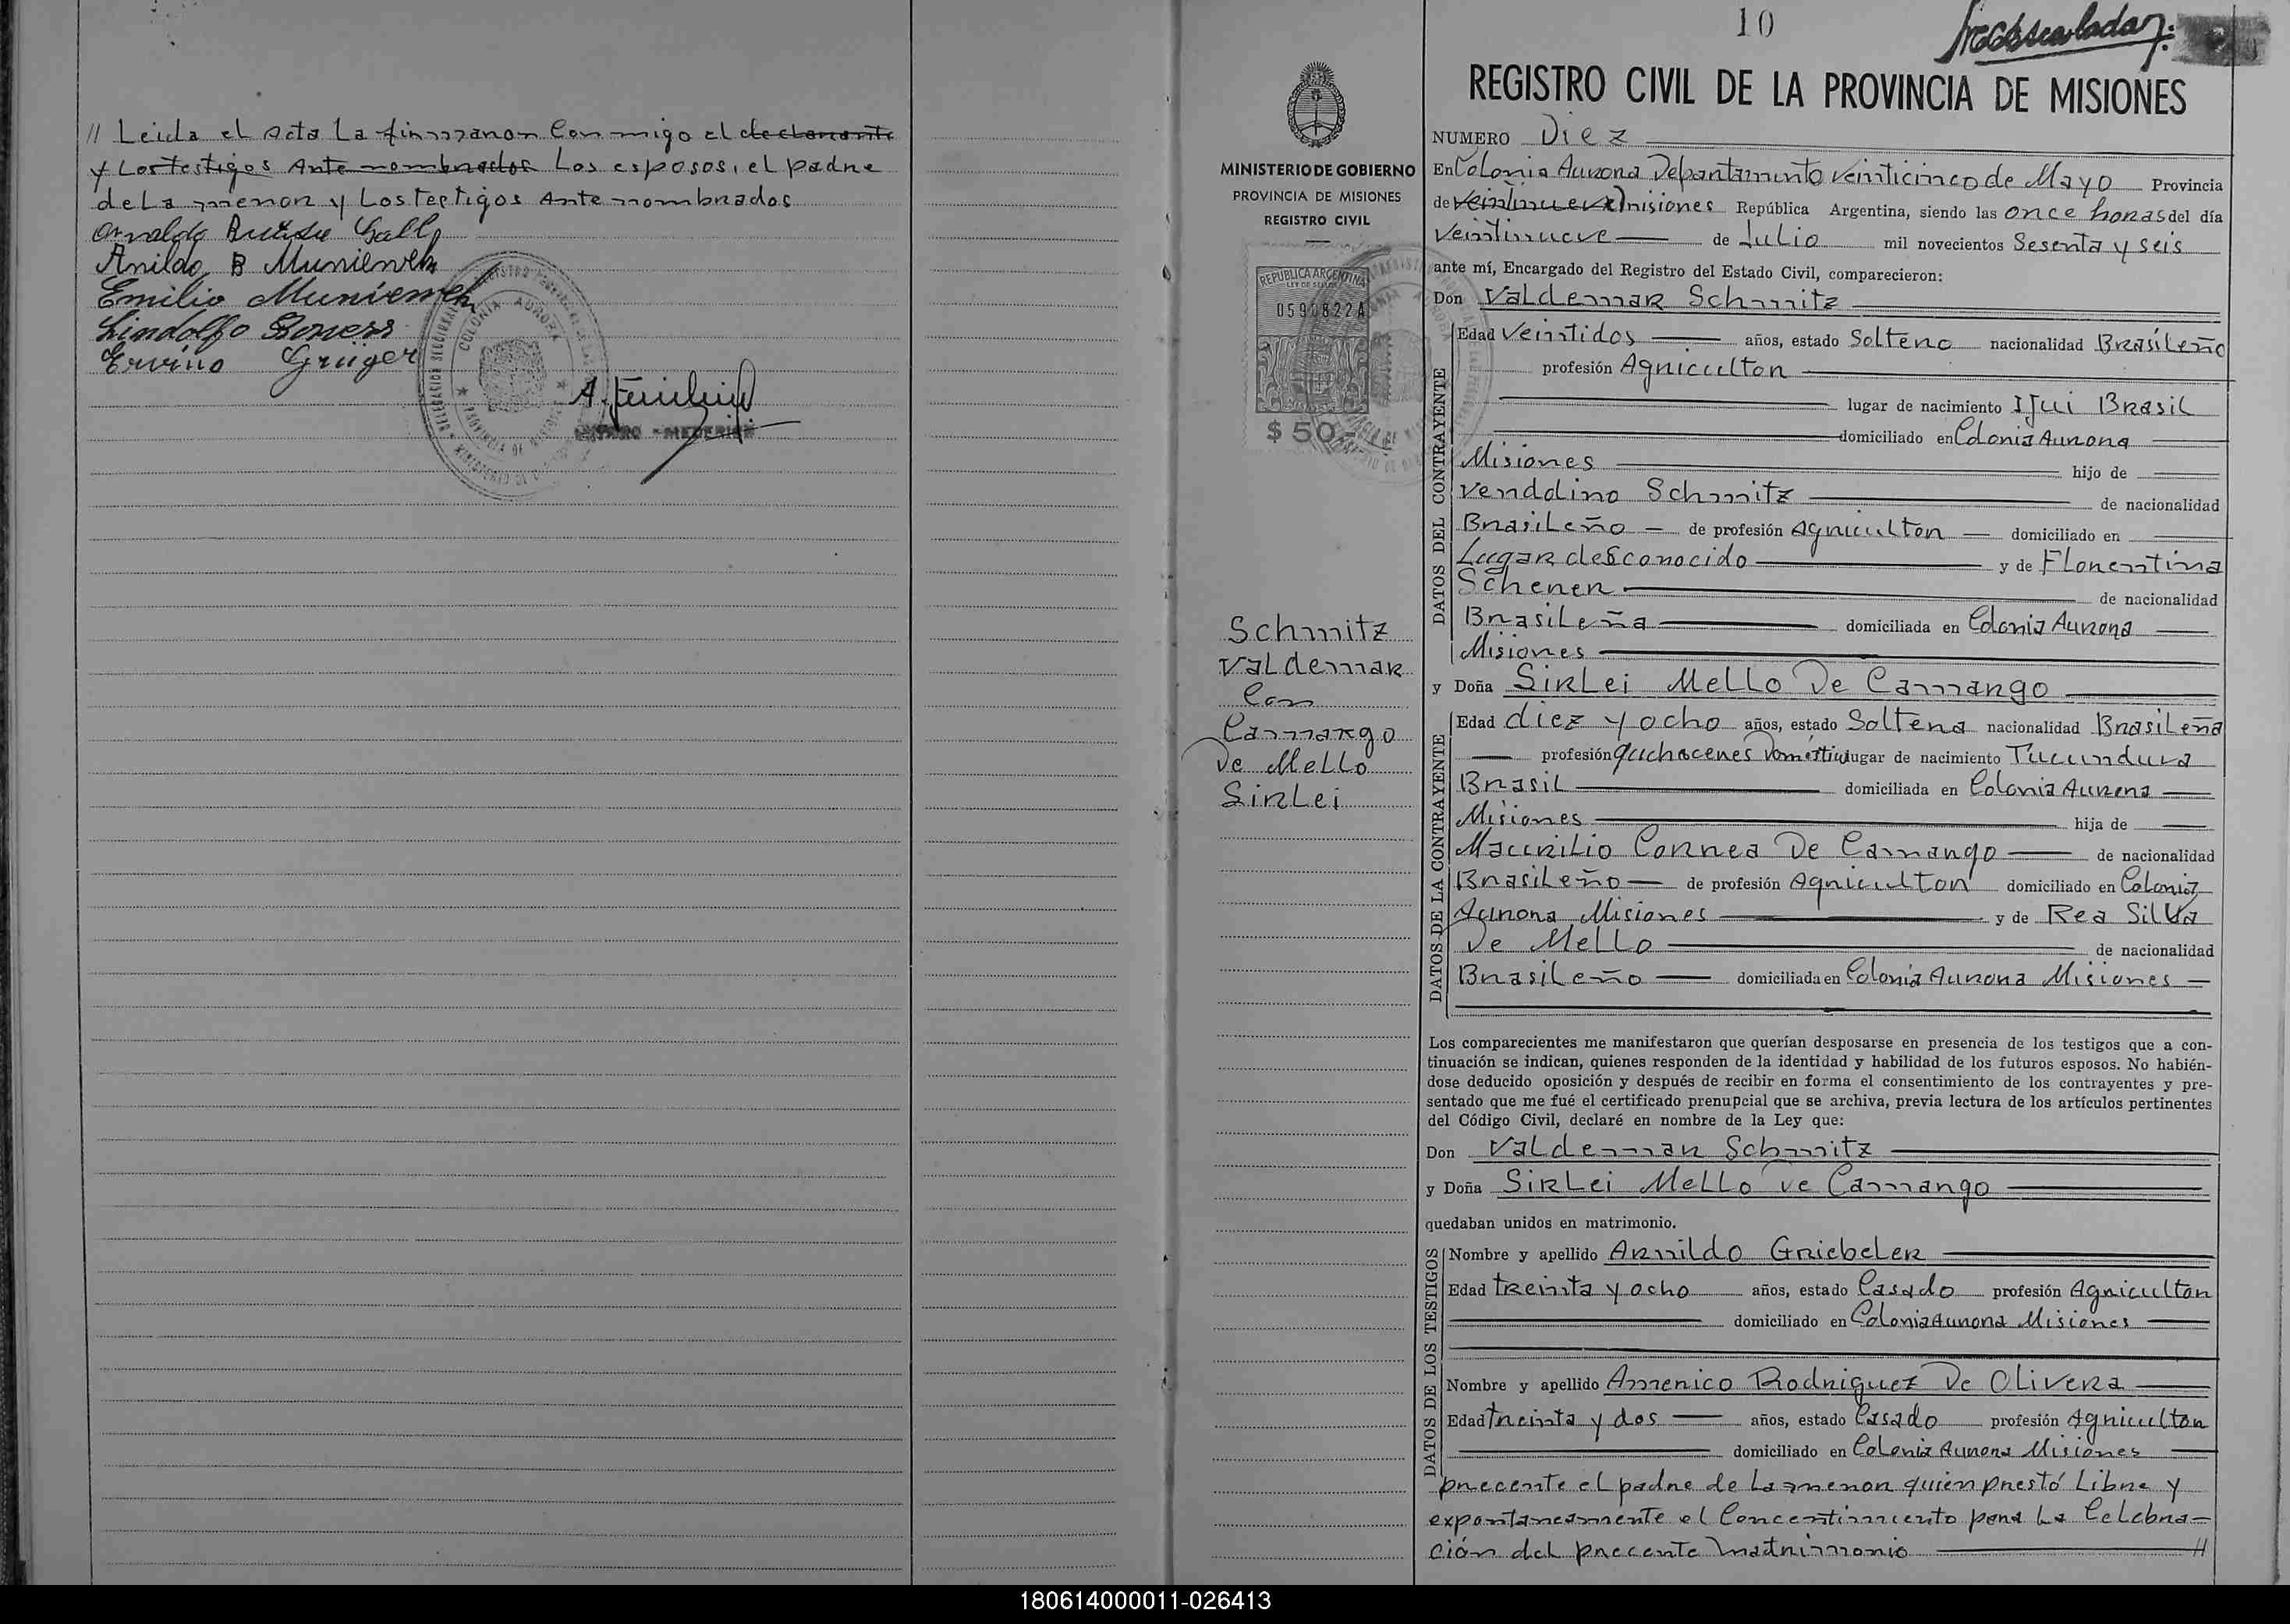 // Leida el acta La finmanon Con migo el declanante
y Los testigos Ante nombnados Los esposos, el padne
de La menon y Los testigos Ante nombnados
Anildo B Munienweh
Emilio Munienweh
Lindolfo Boness
Ervino Grüger
COLONIA AURORA
10
REGISTRO CIVIL DE LA PROVINCIA DE MISIONES
MINISTERIO DE GOBIERNO
PROVINCIA DE MISIONES
REGISTRO CIVIL
REPUBLICA ARGENTINA
LEY DE SELLOS
0590822A
$ 50.-
Schmitz
Valdemar
Con
Camargo
De Mello
Sirlei
NUMERO Diez
En Colonia Aurora Departamento veinticinco de Mayo Provincia
de veintinueve Misiones República Argentina, siendo las once horas del día
veintinueve de Julio mil novecientos Sesenta y seis
ante mí, Encargado del Registro del Estado Civil, comparecieron:
Don Valdemar Schmitz
DATOS DEL CONTRAYENTE
Edad Veintidos años, estado Soltero nacionalidad Brasileño
profesión Agricultor
lugar de nacimiento Ijui Brasil
domiciliado en Colonia Aurora
Misiones hijo de
Venddino Schmitz de nacionalidad
Brasileño de profesión Agricultor domiciliado en
Lugar desconocido y de Florentina
Scherer de nacionalidad
Brasileña domiciliada en Colonia Aurora
Misiones
y Doña Sirlei Mello De Camargo
DATOS DE LA CONTRAYENTE
Edad diez y ocho años, estado Soltera nacionalidad Brasileña
profesión quehaceres Domestic lugar de nacimiento Tucunduva
Brasil domiciliada en Colonia Aurora
Misiones hija de
Maurilio Correa De Camargo de nacionalidad
Brasileño de profesión Agricultor domiciliado en Colonia
Aurora Misiones y de Rea Silva
De Mello de nacionalidad
Brasileño domiciliada en Colonia Aurora Misiones
Los comparecientes me manifestaron que querían desposarse en presencia de los testigos que a con-
tinuación se indican, quienes responden de la identidad y habilidad de los futuros esposos. No habién-
dose deducido oposición y después de recibir en forma el consentimiento de los contrayentes y pre-
sentado que me fué el certificado prenupcial que se archiva, previa lectura de los artículos pertinentes
del Código Civil, declaré en nombre de la Ley que:
Don Valdemar Schmitz
y Doña Sirlei Mello De Camargo
quedaban unidos en matrimonio.
DATOS DE LOS TESTIGOS
Nombre y apellido Arnildo Griebeler
Edad treinta y ocho años, estado Casado profesión Agricultor
domiciliado en Colonia Aurora Misiones
Nombre y apellido Americo Rodriguez De Olivera
Edad treinta y dos años, estado Casado profesión Agricultor
domiciliado en Colonia Aurora Misiones
precente el padre de La menor quien prestó Libre y
expontaneamente el Concentimiento para La Celebra=
ción del precente matrimonio //
180614000011-026413